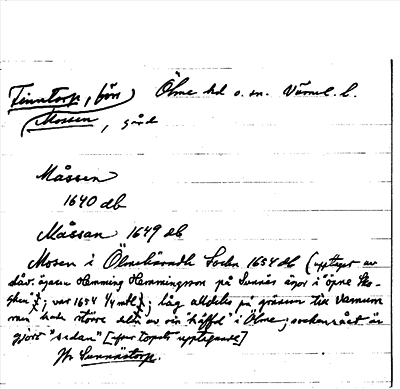 Finntorp, förr Ölme hd o. sn. Värml. l.
Mossen, gård
Måssen
1640 db
Måssan 1649 db
Mosen i Ölmehäradh Sochn 1654 db (upptaget av
dåv. ägaren Hemming Hemmingsson på Svenäs ägor i "öpne Sko-
ghen"; var 1654 1/4 mtl; låg alldeles på gränsen till Varnum
men hade större delen av sin i Ölme; sockenrået är
gjort "sedan" [efter torpets upptagande]
Jfr Svenästorp.